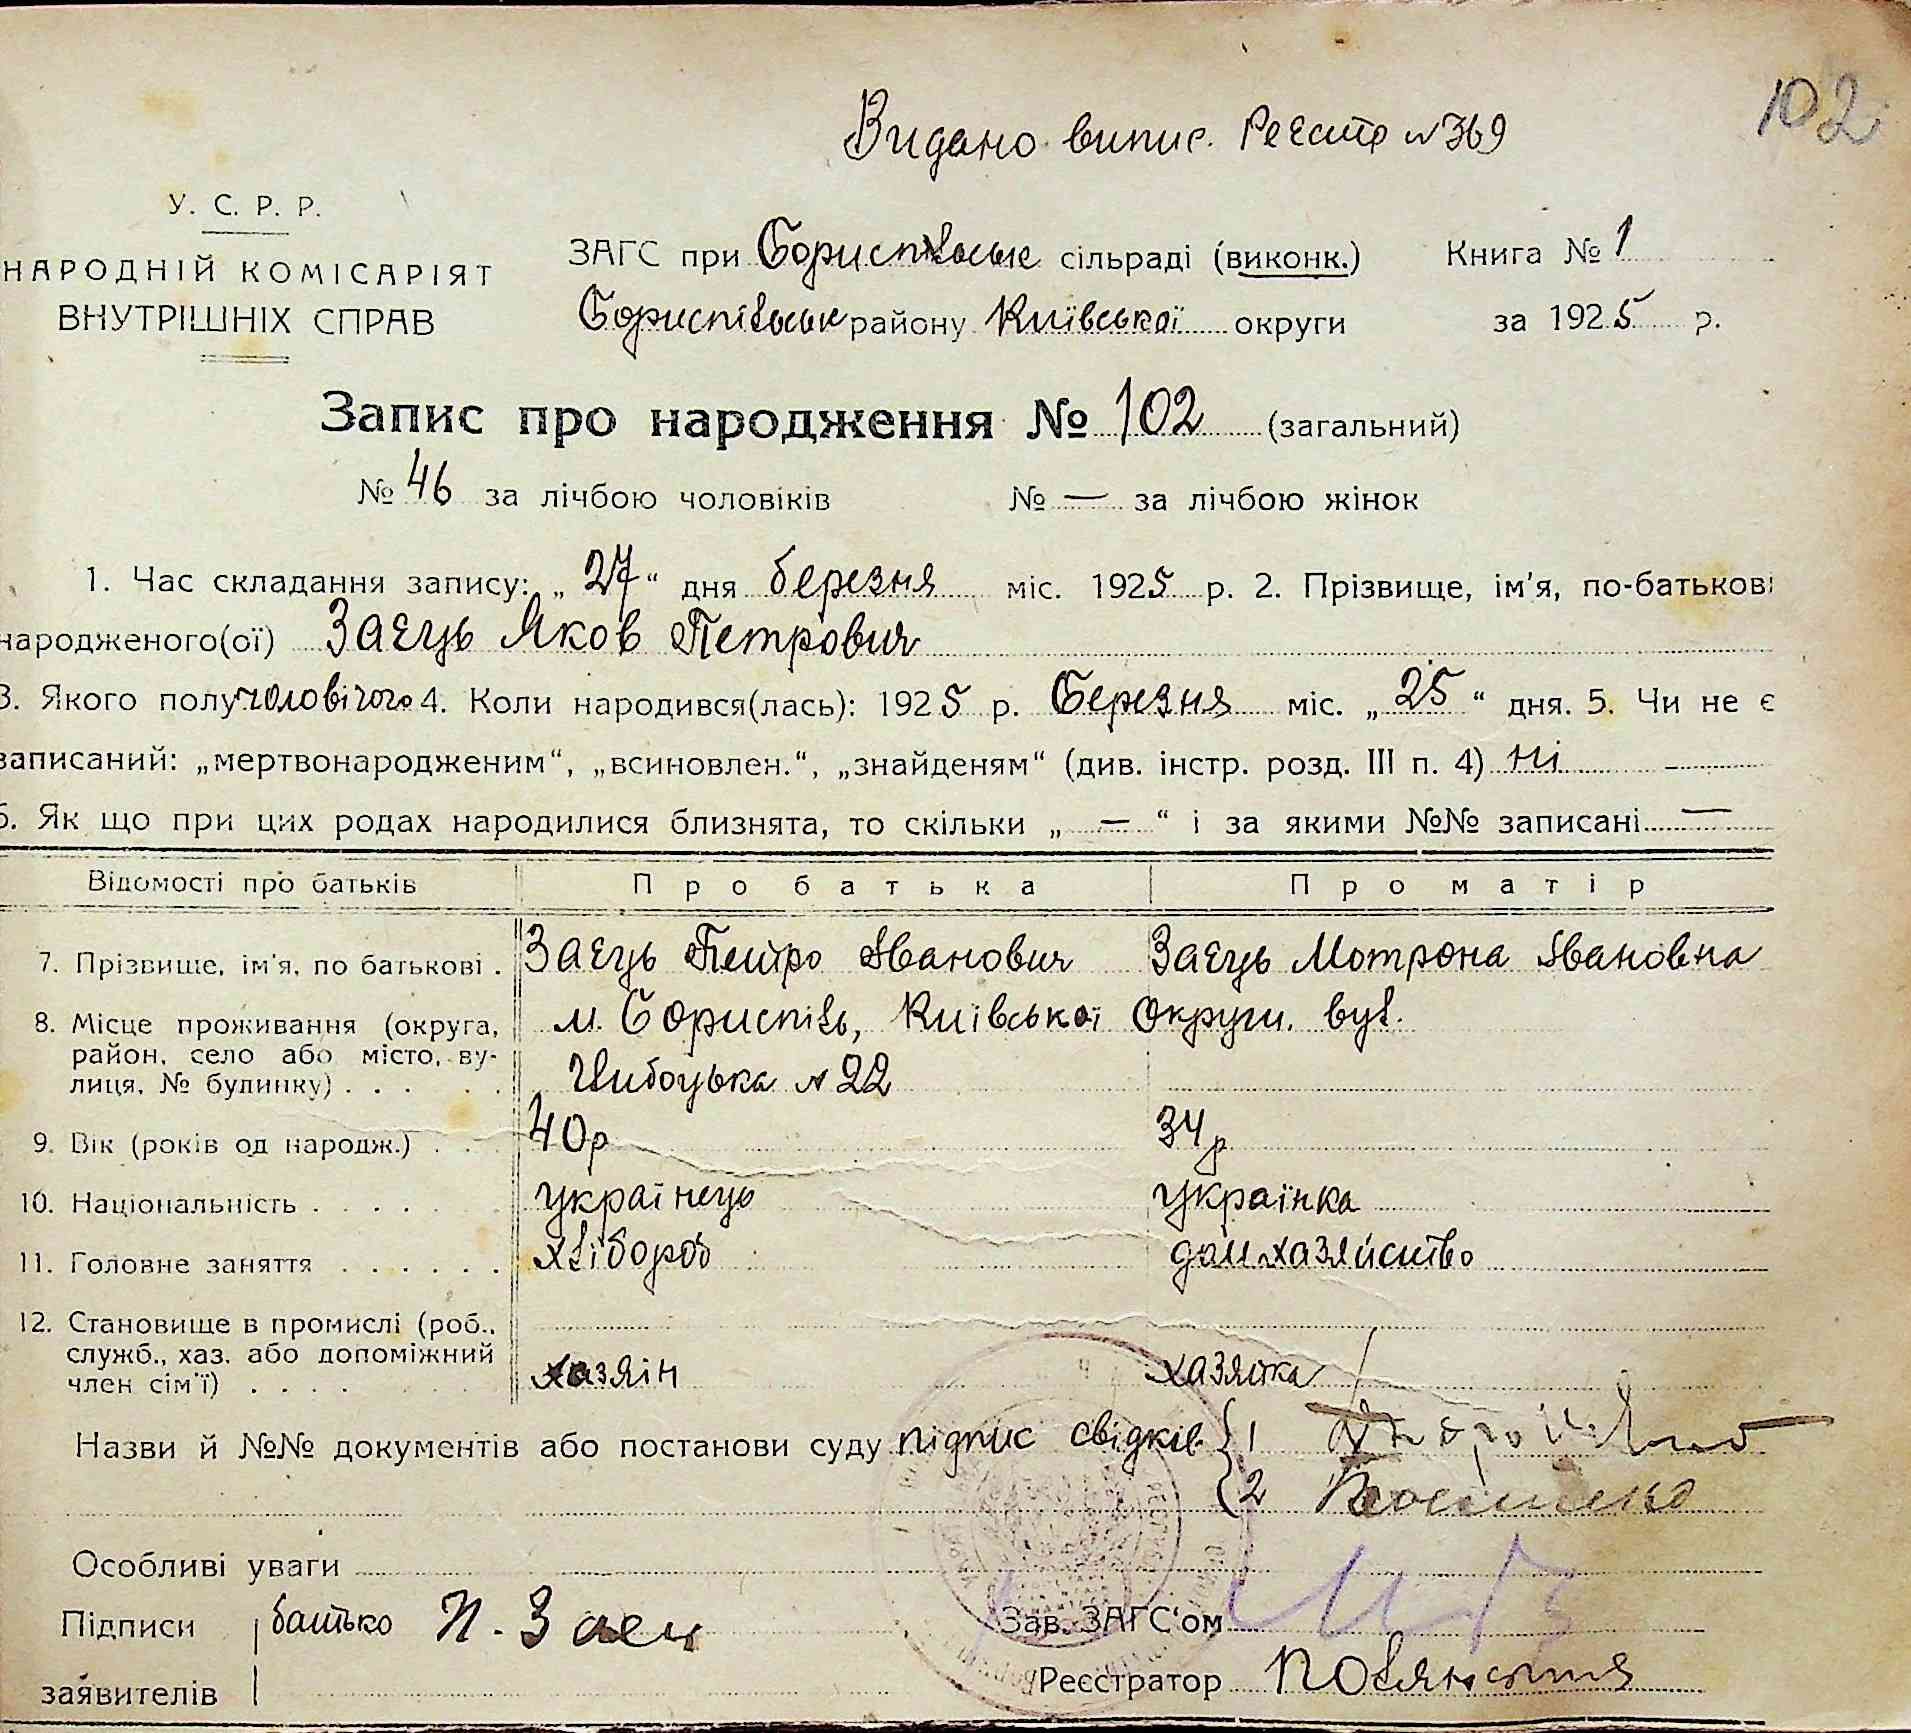 102
Видано випис. Реєстр №369
У. С. Р. Р.
НАРОДНІЙ КОМІСАРІЯТ
ВНУТРІШНІХ СПРАВ
ЗАГС при Бориспільськ сільраді (виконк.) Книга № 1
Бориспільськ району Київської округи за 1925 р.
Запис про народження № 102 (загальний)
№ 46 за лічбою чоловіків № — за лічбою жінок
1. Час складання запису: „27“ дня березня міс. 1925 р. 2. Прізвище, ім'я, по-батькові
народженого(ої) Заєць Яков Петрович
3. Якого полу чоловічого 4. Коли народився(лась): 1925 р. Березня міс. „25“ дня. 5. Чи не є
записаний: „мертвонародженим“, „всиновлен.“, „знайденям“ (див. інстр. розд. III п. 4) ні
6. Як що при цих родах народилися близнята, то скільки „—“ і за якими №№ записані —
Відомості про батьків Про батька Про матір
7. Прізвище, ім'я, по батькові . Заєць Петро Іванович Заєць Мотрона Івановна
8. Місце проживання (округа, м. Бориспіль, Київської округи. вул.
район, село або місто, ву-
лиця, № будинку) . . . № 22
9. Вік (років од народж.) . . . 40р 34р
10. Національність . . . . . українець українка
11. Головне заняття . . . . . . хлібороб дом. хазяйство
12. Становище в промислі (роб.,
служб., хаз. або допоміжний
член сім'ї) . . . . хазяїн хазяйка
Назви й №№ документів або постанови суду підпис свідків 1
2
Особливі уваги
Підписи батько П. Заец Зав. ЗАГС'ом
заявителів Реєстратор